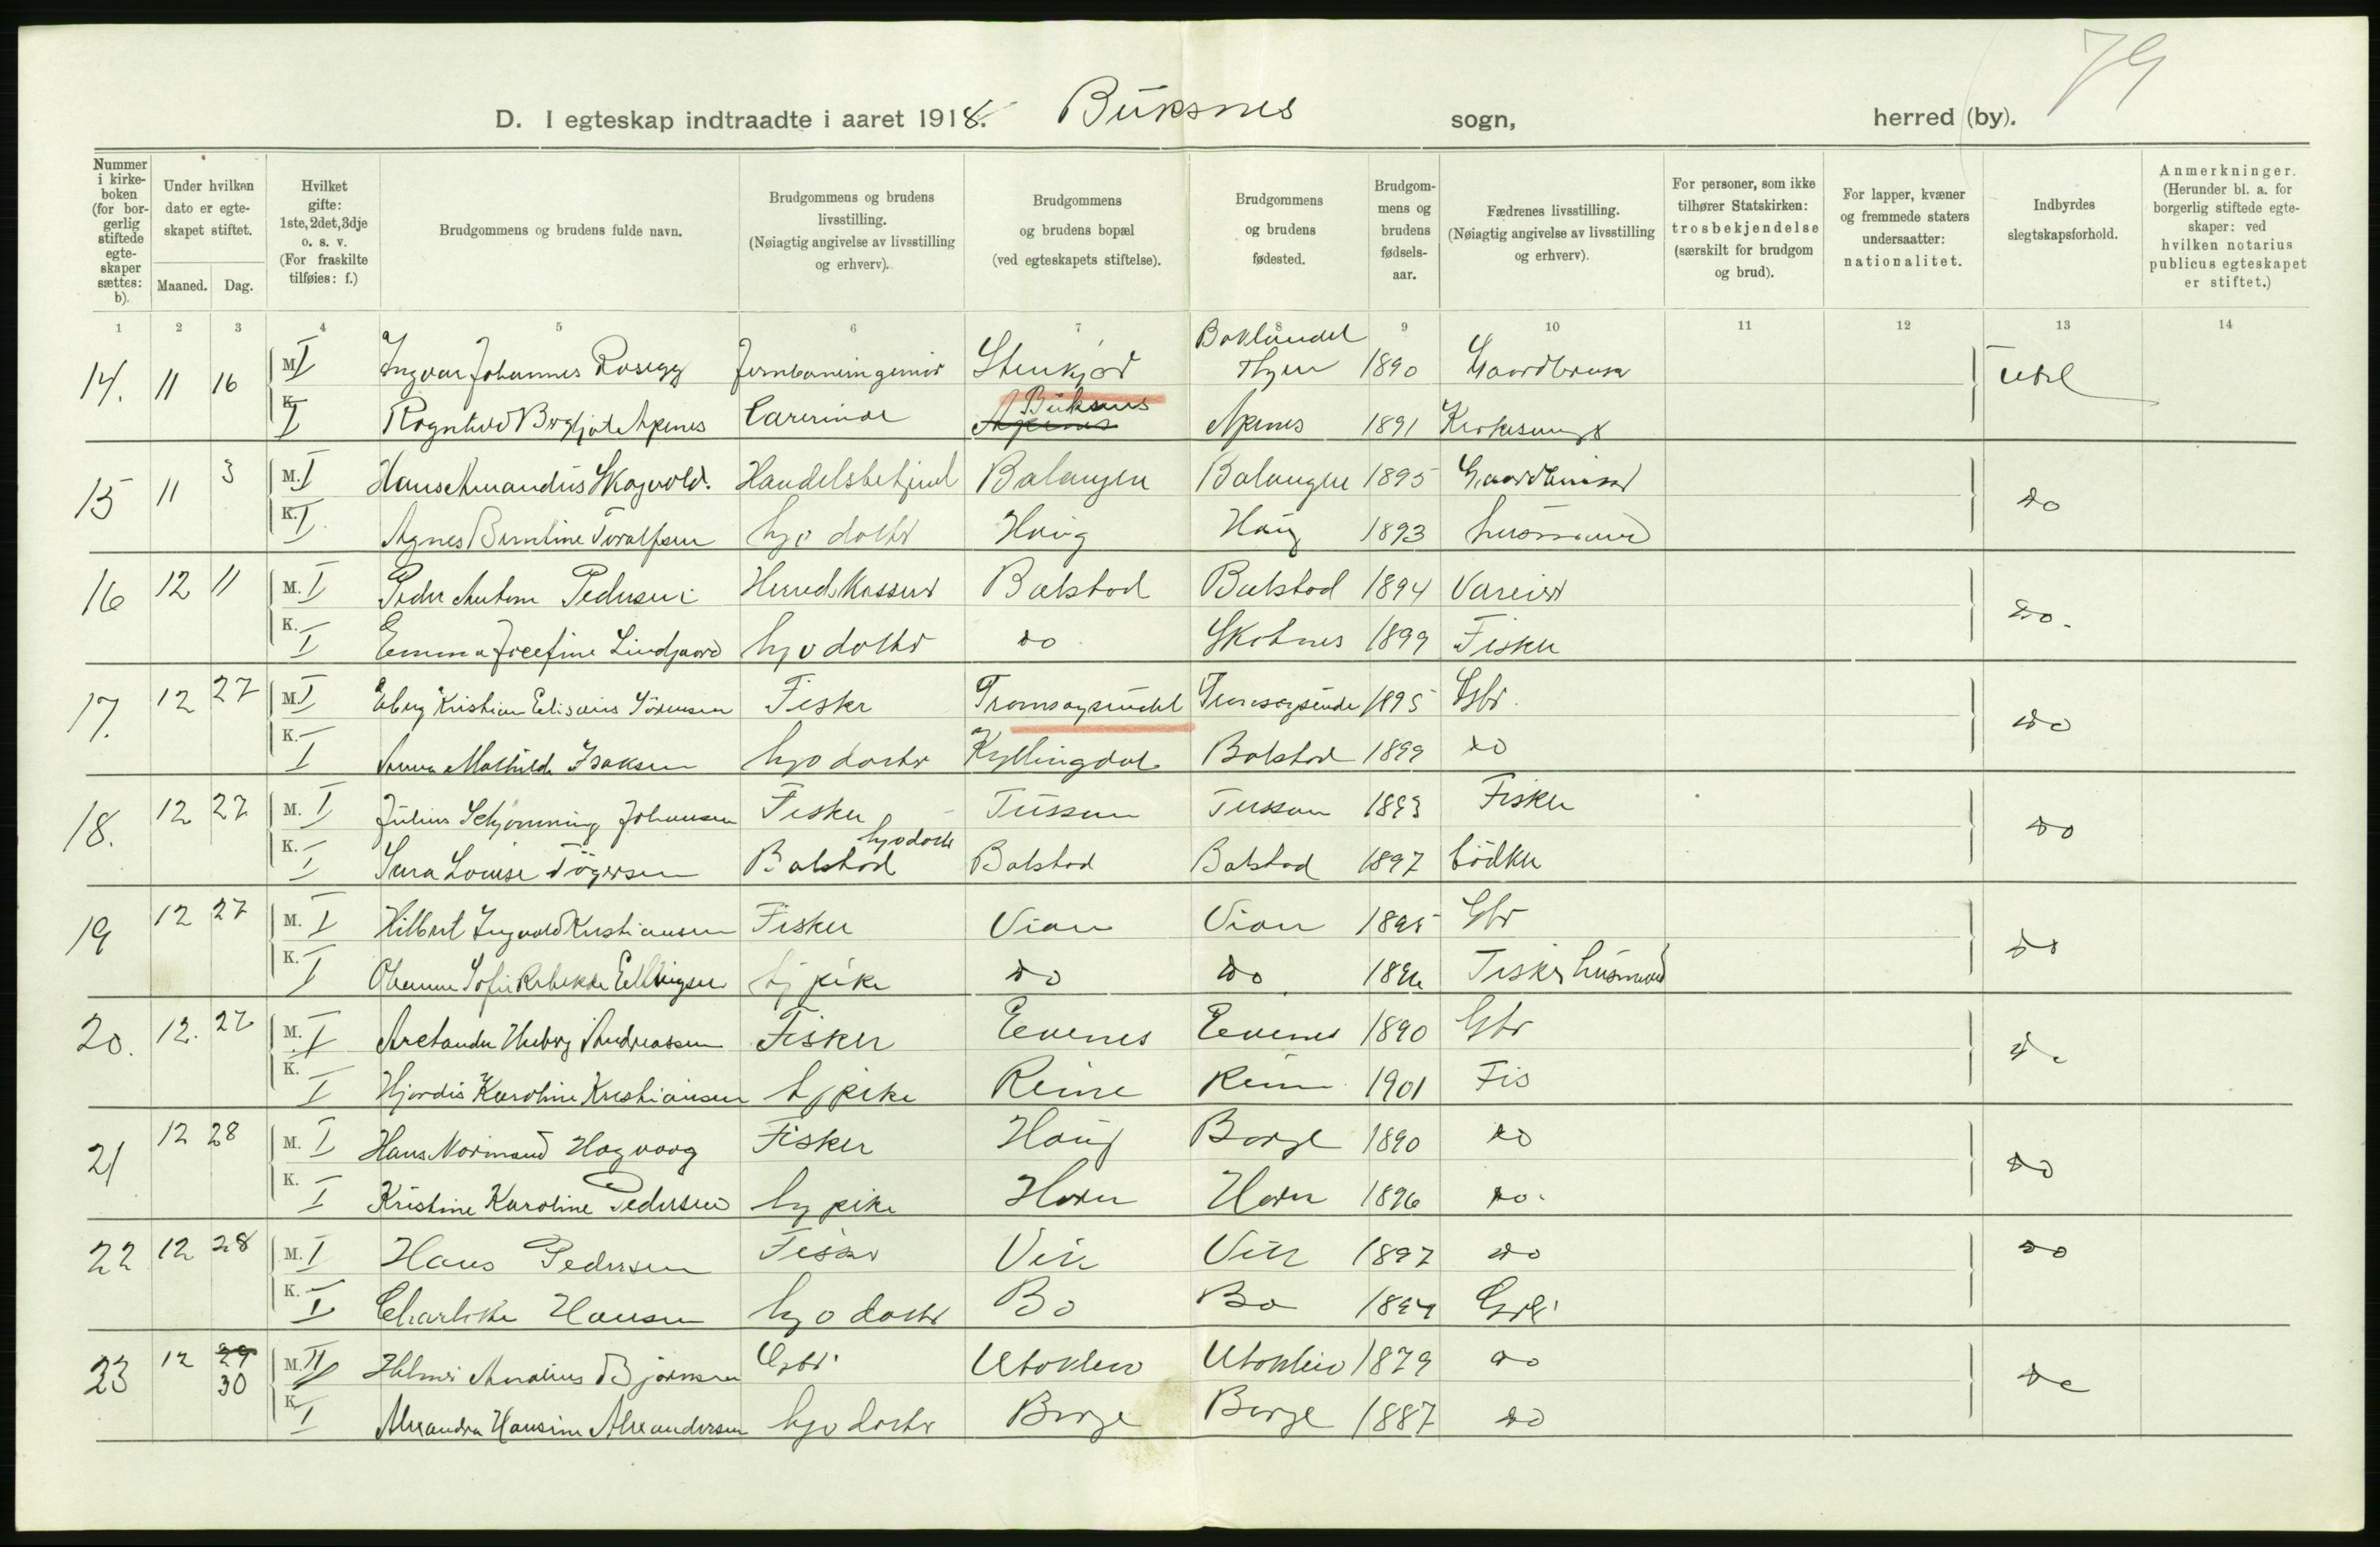 79
D. I egteskap indtraadte i aaret 1918. Buksnes sogn, herred (by).
Nummer i kirkeboken (for borgerlig stiftede egteskaper sættes: b).
Under hvilken dato er egteskapet stiftet.
Maaned. Dag.
Hvilket gifte: 1ste, 2det, 3dje o. s. v. (For fraskilte tilføies: f.)
Brudgommens og brudens fulde navn.
Brudgommens og brudens livsstilling. (Nøiagtig angivelse av livsstilling og erhverv).
Brudgommens og brudens bopæl (ved egteskapets stiftelse).
Brudgommens og brudens fødested.
Brudgommens og brudens fødselsaar.
Fædrenes livsstilling. (Nøiagtig angivelse av livsstilling og erhverv).
For personer, som ikke tilhører Statskirken: trosbekjendelse (særskilt for brudgom og brud).
For lapper, kvæner og fremmede staters undersaatter: nationalitet.
Indbyrdes slegtskapsforhold.
Anmerkninger. (Herunder bl. a. for borgerlig stiftede egteskaper: ved hvilken notarius publicus egteskapet er stiftet.)
1 2 3 4 5 6 7 8 9 10 11 12 13 14
14. 11 16 M. I Ingvar Johannes Rosegg Stenkjær 1890 Gaardbruker
K. I Buksnes Apenes 1891 Kirkesanger
15 11 3 M. I Skogvold. Handelsbetjent Balangen Balangen 1895 Gaardbruker do
K. I Agnes Berntine Toralfsen hjv datter Haug Haug 1893 husmand
16 12 11 M. I Peder Anton Pedersen Herredskasserer Balstad Balstad 1894 do.
K. I Emma Josefine Lindgaard hjv datter do Skotnes 1899 Fisker
17. 12 27 M. I Kristian Sörensen Fisker Tromsøysundet Tromsøysundet 1895 Gbr. do
K. I Anna Mathilde Isaksen hjv datter Kyllingdal Balstad 1899 do
18. 12 27 M. I Julius Johansen Fisker Tussan Tussan 1893 Fisker do
hjv datter
K. I Louise Balstad Balstad Balstad 1897 bödker
19 12 27 M. I Hilbert Ingvald Kristiansen Fisker Vian Vian 1895 Gbr do
K. I Sofie Rebekka Ellingsen tj pike do do Fisker husmand
20. 12. 27 M. I Andreassen Fisker Evenes Evenes 1890 Gbr do
K. I Hjördis Karoline Kristiansen tj pike Reine Reine 1901 Fis
21 12 28 M. I Hans Normand Hagvaag Fisker Haug Borge 1890 do do
K. I Kristine Karoline Pedersen tj pike Horn Horn 1896 do.
22 12 28 M. I Hans Pedersen Fisker Vik Vik 1897 do do
K. I Hansen hjv datter Bø Bø Gbr
23 12 29 30 M. II Gbr. Utakleiv Utakleiv 1879 do do
K. I Alexandra Hansine Alexandersen hjv datter Borge Borge 1887 do